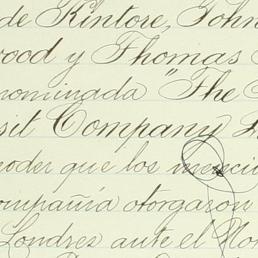 de Kintore, John
wood y Thomas
nominada "The
sit Company
poder que los mencio
ompañía otorgaron
Londres ante el No